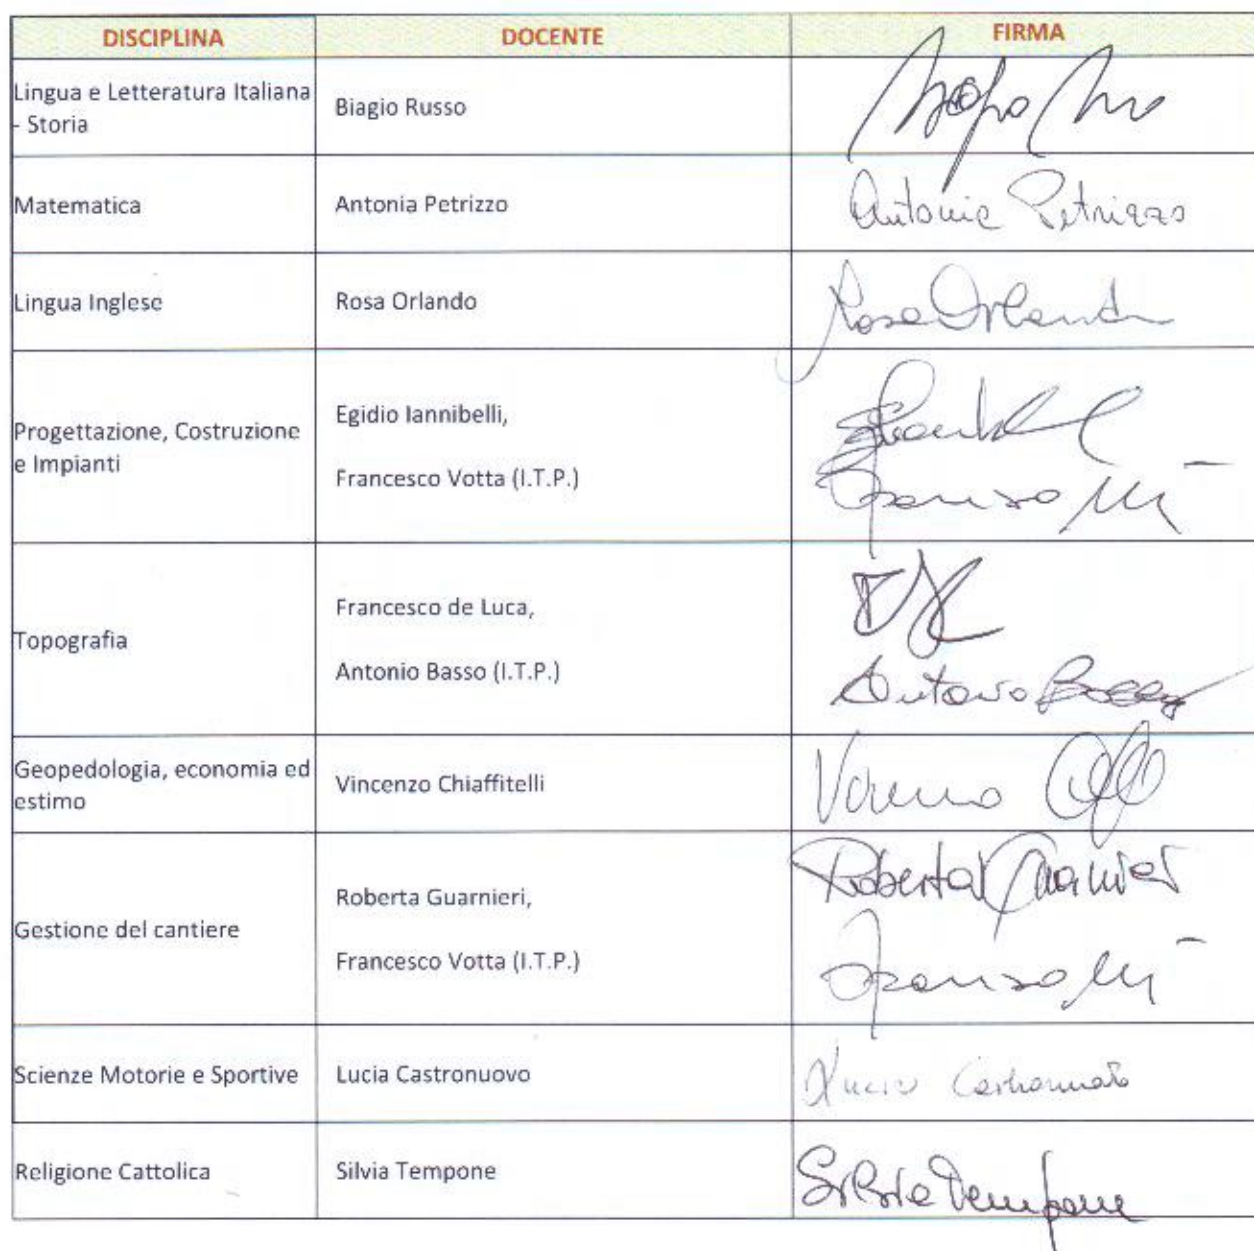 DISCIPLINA DOCENTE FIRMA
Lingua e Letteratura Italiana
- Storia
Biagio Russo
Matematica Antonia Petrizzo Antonia Petrizzo
Lingua Inglese Rosa Orlando Rosa Orlando
Progettazione, Costruzione
e Impianti
Egidio Iannibelli,
Francesco Votta (I.T.P.)
Topografia
Francesco de Luca,
Antonio Basso (I.T.P.)
Antonio Basso
Geopedologia, economia ed
estimo
Vincenzo Chiaffitelli
Gestione del cantiere
Roberta Guarnieri,
Francesco Votta (I.T.P.)
Roberta Guarnieri
Scienze Motorie e Sportive Lucia Castronuovo Lucia Castronuovo
Religione Cattolica Silvia Tempone Silvia Tempone